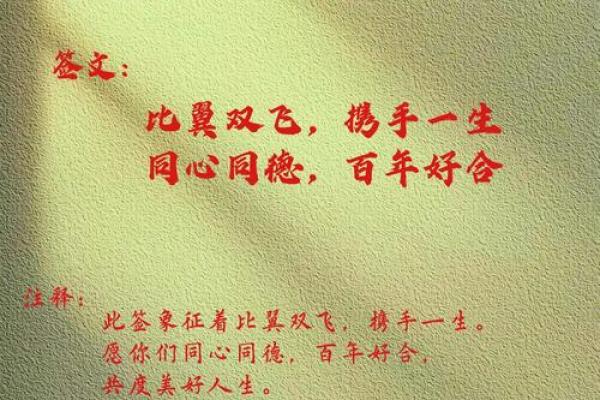 签文：
比翼双飞，携手一生
同心同德，百年好合
注释：
此签象征着比翼双飞，携手一生。
愿你们同心同德，百年好合，
共度美好人生。